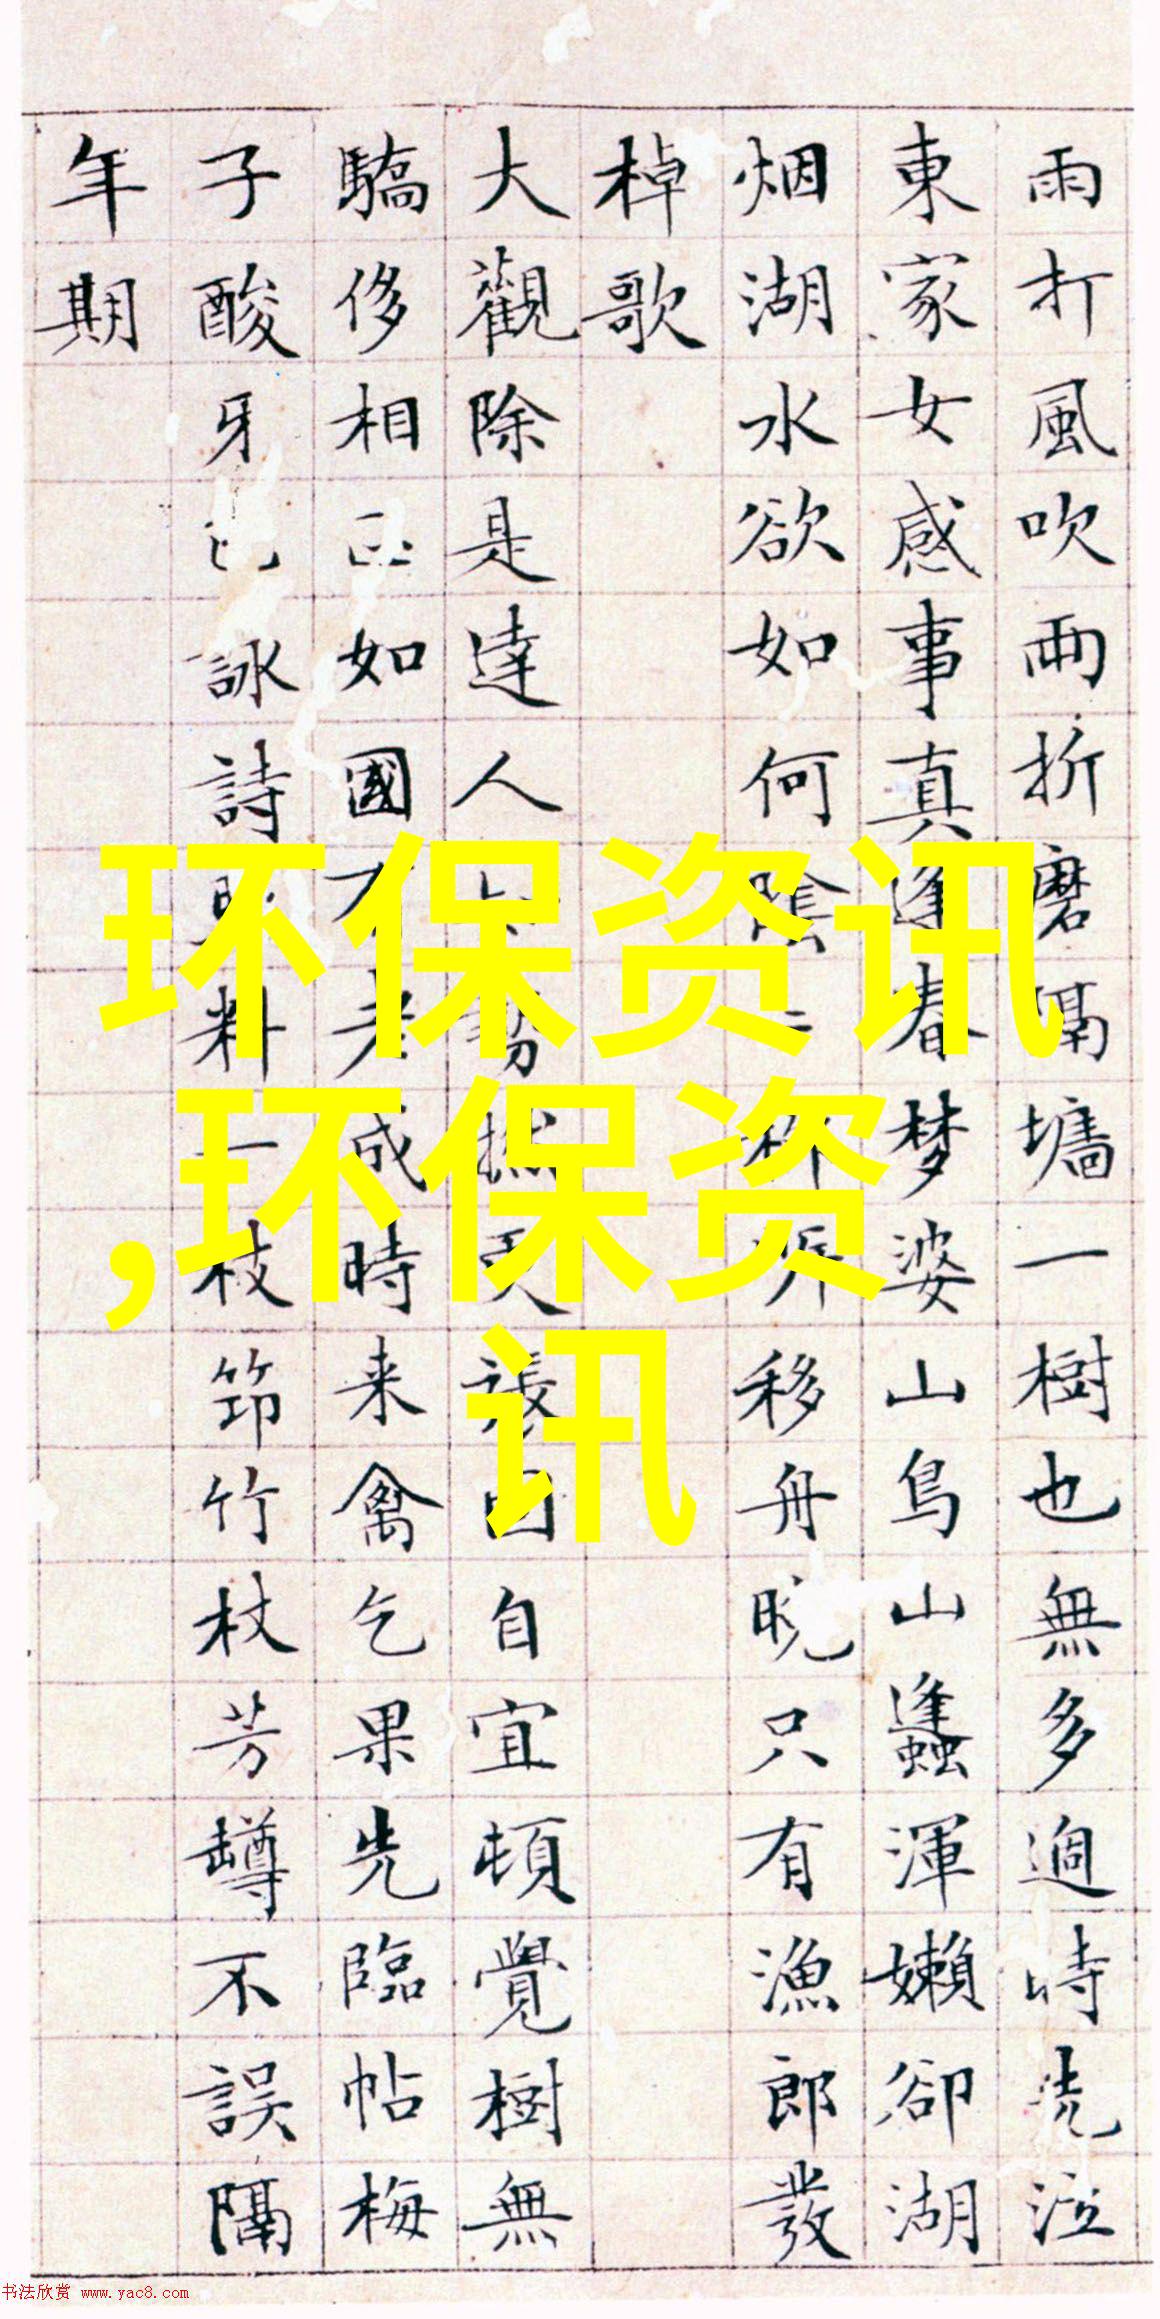 雨打風吹雨折磨隔墻一樹也無多過時洗泣
東家女感事真逢春梦婆山鳥山蠭渾嬾卻湖
烟湖水欲如何陰移舟晚只有漁郎發
棹歌
大觀除是達人自宜頓覺樹無
驕侈相如國老成時来禽乞果先臨帖梅
子酸牙詠詩料一枝筇竹杖芳罇不誤隔
年期
环保资讯
,环保资
讯
书法欣赏 www.yac8.com